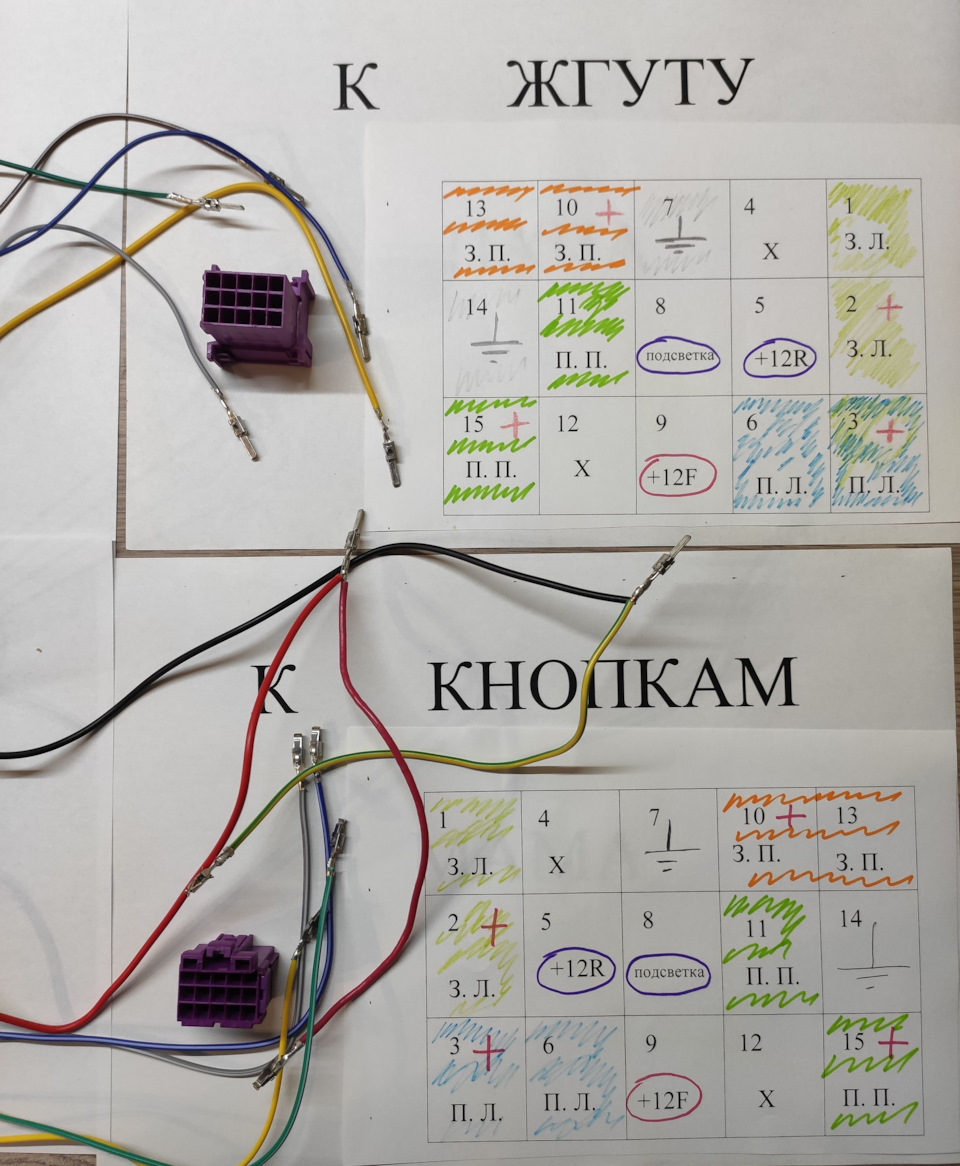 К ЖГУТУ
13 10 + 7 4 1
З. П. З. П. Х З. Л.
14 11 8 5 2 +
П. П. подсветка +12R З. Л.
15 + 12 9 6 3 +
П. П. Х +12F П. Л. П. Л.
К КНОПКАМ
1 4 7 10 + 13
З. Л. Х З. П. З. П.
2 + 5 8 11 14
З. Л. +12R подсветка П. П.
3 + 6 9 12 15 +
П. Л. П. Л. +12F Х П. П.